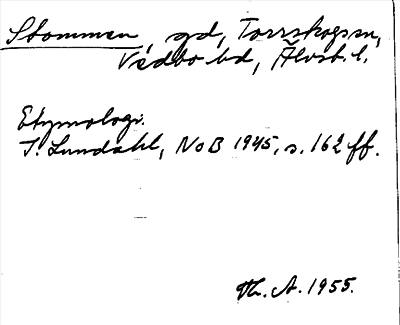 Stommen, gd, Torrskogs sn,
Vedbo hd, Älvsb. l.
Etymologi.
I. Lundahl, NoB 1945, s. 162 ff.
Th. A. 1955.